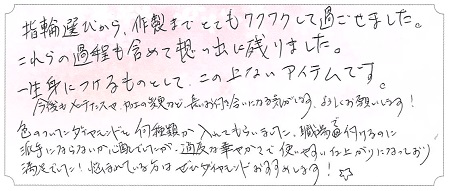 指輪選びから、作製までとてもワクワクして過ごせました。
これらの過程も含めて想い出に残りました。
一生身につけるものとして、この上ないアイテムです。
今後もメンテナンスや、加工の変更など、長いお付き合いになる気がします。よろしくお願いします！
色のついたダイヤモンドも何種類か入れてもらいました。職場で付けるのに
派手にならないか心配でしたが、適度な華やかさで使いやすい仕上がりになっており
満足でした！悩まれている方はぜひダイヤモンドおすすめします！☆